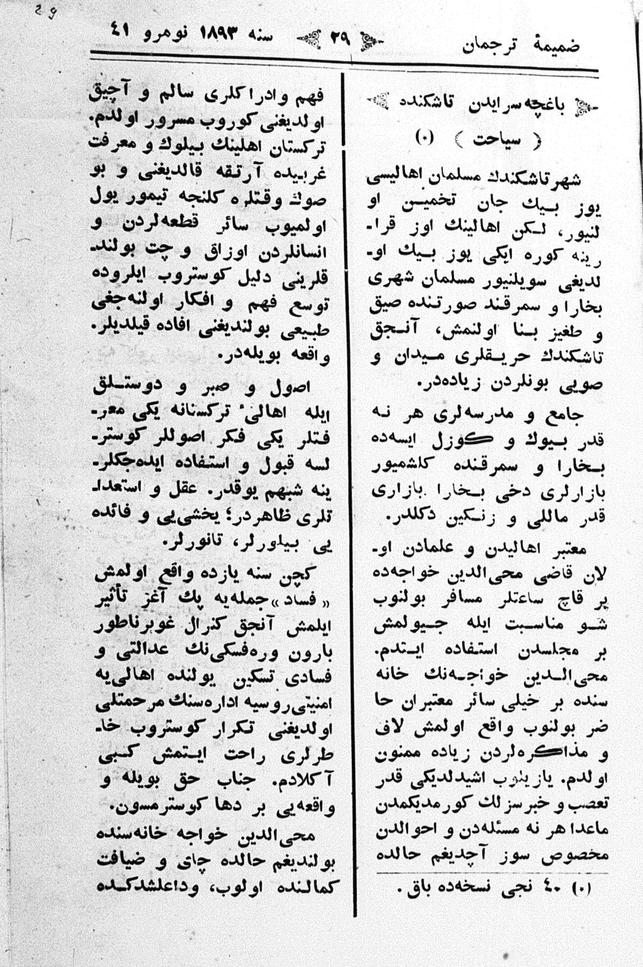 29
ضميمهٔ ترجمان ٢٩ سنه ١٨٩٣ نومرو ٤١
باغچه سرايدن تاشكنده
( سياحت ) (٠)
شهر تاشكندك مسلمان اهاليسى
يوز بيك جان تخميـن او
لنيور، لـكن اهالينك اوز قراـ
رينه كوره ايكى يوز بيك اوـ
لديغى سويلنيور مسلمان شهرى
بخارا و سمرقند صورتنده صيق
و طغيز بنا اولنمش، آنـجق
تاشكندك حريقلرى ميدان و
صويى بونلردن زياده‌در.
جامع و مدرسه‌لرى هر نه
قدر بيوك و كوزل ايسه‌ده
بـخارا و سمرقنده كلشميور
بازارلرى دخى بـخارا بازارى
قدر ماللى و زنـكين دكلدر.
معتبر اهاليدن و علمادن اوـ
لان قاضى محى‌الدين خواجه‌ده
بر قاچ ساعتلر مسافر بولنوب
شـو مناسبت ايله جـيولمش
بر مجلسدن استفاده ايتدم.
محى‌الـدين خواجه‌نك خانه
سنده بر خيلى سائر معتبران حا
ضر بولنوب واقع اولمش لاف
و مذاكره‌لردن زياده ممنون
اولدم. يازينوب اشيدلديكى قدر
تعصب و خبرسزلك كورمديكمدن
ماعدا هر نه مسئله‌دن و احوالدن
مخصوص سوز آچديغم حالده
(٠) ٤٠ نجى نسخه‌ده باق.
فهم وادراكلرى سالم و آچيق
اولديغنى كوروب مسرور اولدم.
تركستان اهلينك بيلوك و معرفت
غربيده آرتقه قالديغنى و بو
صوك وقتلره كلنجه تيمور يول
اولميوب سائر قطعه‌لردن و
انسانلردن اوزاق و چت بولندـ
قلرينى دليل كوستروب ايلروده
توسع فهم و افكار اولنه‌جغى
طبيعى بولنديغنى افاده قيلديلر.
واقعه بويله‌در.
اصول و صبر و دوستـلق
ايله اهالىٔ تركستانه يكى معرـ
فتلر يكى فكر اصوللر كوسترـ
لسه قبول و استفاده ايده‌جكلرـ
ينه شبهم يوقدر. عقل و استعداـ
تلرى ظاهردر؛ يخشى‌يى و فائده
يى بيلورلر، تانورلر.
كچن سنه يازده واقع اولمش
«فساد» جمله‌يه پك آغز تأثير
ايلمش آنجق كنرال غوبرناطور
بارون وره‌فسكى‌نك عدالتى و
فسادى تسكين يولنده اهالى‌يه
امنيتى روسيه اداره‌سنك مرحمتلى
اولديغنى تكرار كوستروب خاـ
طرلرى راحت ايـتمش كـبى
آكلادم. جناب حق بويله و
واقعه‌يى بر دها كوسترمسون.
محى‌الدين خواجه خانه‌سنده
بولنديغم حالده چاى و ضيافت
كمالنده اولوب، وداعلشدكـده